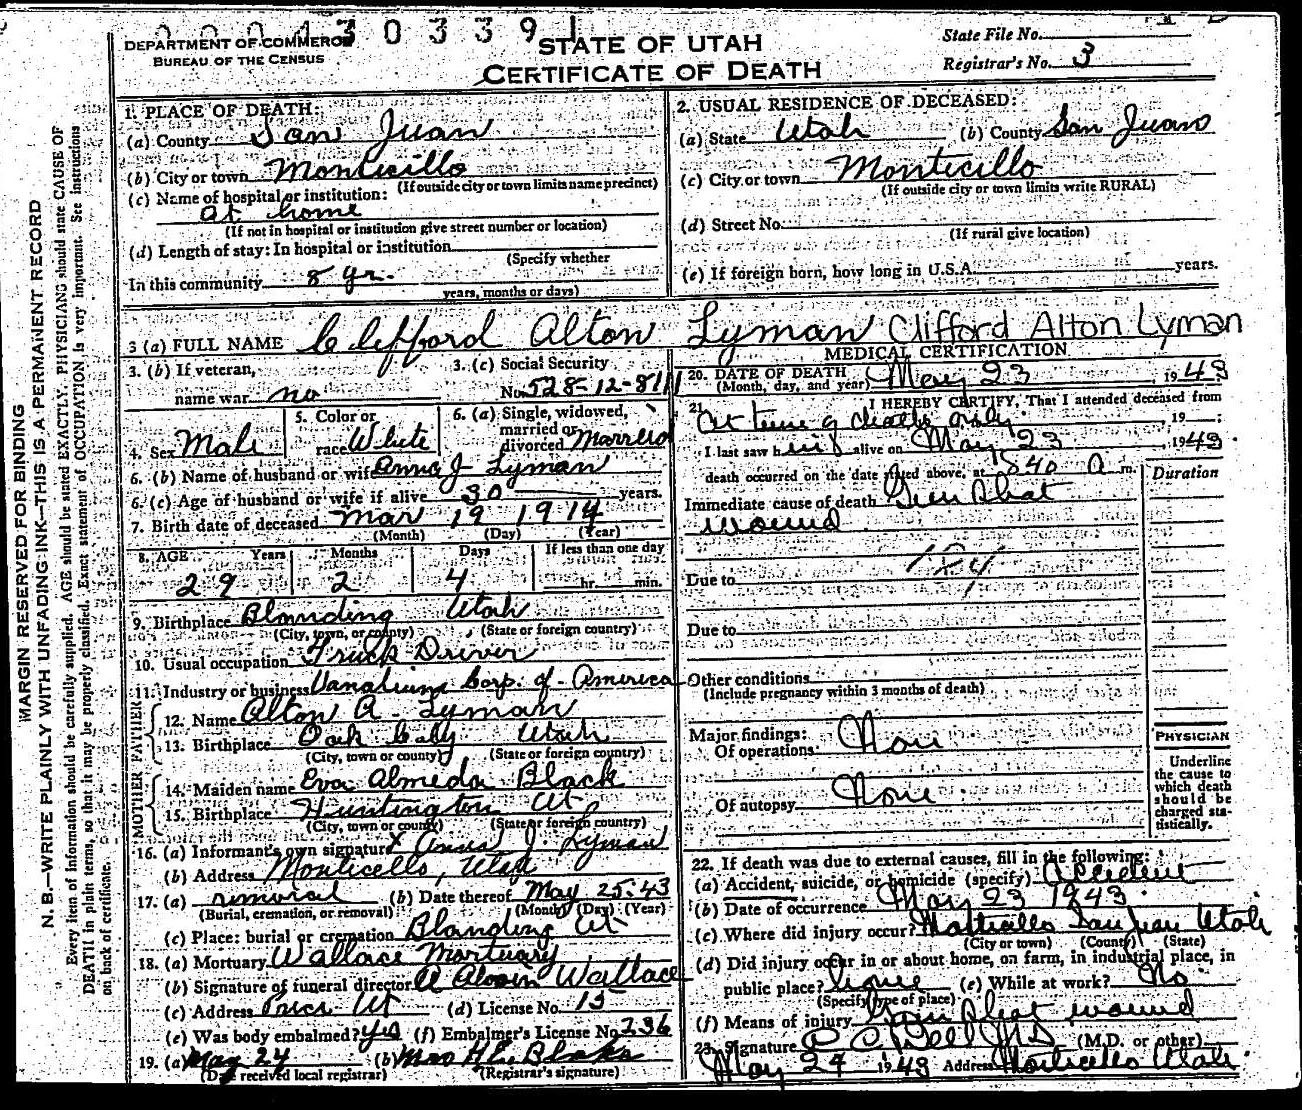 30339
DEPARTMENT OF COMMERCE
BUREAU OF THE CENSUS
STATE OF UTAH
CERTIFICATE OF DEATH
State File No.
Registrar's No. 3
MARGIN RESERVED FOR BINDING
N. B.—WRITE PLAINLY WITH UNFADING INK—THIS IS A PERMANENT RECORD
Every item of information should be carefully supplied. AGE should be stated EXACTLY. PHYSICIANS should state CAUSE OF
DEATH in plain terms, so that it may be properly classified. Exact statement of OCCUPATION is very important. See instructions
on back of certificate.
1. PLACE OF DEATH:
(a) County San Juan
(b) City or town Monticello
(If outside city or town limits name precinct)
(c) Name of hospital or institution:
at home
(If not in hospital or institution give street number or location)
(d) Length of stay: In hospital or institution
(Specify whether
In this community 8 yr.
years, months or days)
2. USUAL RESIDENCE OF DECEASED:
(a) State Utah (b) County San Juan
(c) City or town Monticello
(If outside city or town limits write RURAL)
(d) Street No.
(If rural give location)
(e) If foreign born, how long in U.S.A. years.
3 (a) FULL NAME Clifford Alton Lyman Clifford Alton Lyman
3. (b) If veteran,
name war no
3. (c) Social Security
No. 528-12-8111
4. Sex Male
5. Color or
race White
6. (a) Single, widowed,
married or
divorced Married
6. (b) Name of husband or wife Anna J Lyman
6. (c) Age of husband or wife if alive 30 years.
7. Birth date of deceased Mar 19 1914
(Month) (Day) (Year)
8. AGE Years Months Days If less than one day
29 2 4 hr. min.
9. Birthplace Blanding Utah
(City, town, or county) (State or foreign country)
10. Usual occupation Truck Driver
11. Industry or business Vanadium Corp. of America
FATHER
12. Name Alton A. Lyman
13. Birthplace Oak City Utah
(City, town or county) (State or foreign country)
MOTHER
14. Maiden name Eva Almeda Black
15. Birthplace Huntington Ut
(City, town or county) (State or foreign country)
16. (a) Informant's own signature x Anna J. Lyman
(b) Address Monticello, Utah
17. (a) removal (b) Date thereof May 25-43
(Burial, cremation, or removal) (Month) (Day) (Year)
(c) Place: burial or cremation Blanding Ut
18. (a) Mortuary Wallace Mortuary
(b) Signature of funeral director Wallace
(c) Address Price Ut (d) License No. 15
(e) Was body embalmed? yes (f) Embalmer's License No. 236
19. (a) May 24 (b) Mrs
(Date received local registrar) (Registrar's signature)
MEDICAL CERTIFICATION
20. DATE OF DEATH
(Month, day, and year) May 23 1943
21. I HEREBY CERTIFY, That I attended deceased from
At time of death only, 19
I last saw him alive on May 23, 1943.
death occurred on the date stated above, at 840 A m.
Duration
Immediate cause of death Gun Shot
wound
Due to 184
Due to
Other conditions
(Include pregnancy within 3 months of death)
Major findings:
Of operations None
Of autopsy None
PHYSICIAN
Underline
the cause to
which death
should be
charged sta-
tistically.
22. If death was due to external causes, fill in the following:
(a) Accident, suicide, or homicide (specify) Accident
(b) Date of occurrence May 23 1943
(c) Where did injury occur? Monticello San Juan Utah
(City or town) (County) (State)
(d) Did injury occur in or about home, on farm, in industrial place, in
public place? home (e) While at work? No
(Specify type of place)
(f) Means of injury Gun Shot wound
23. Signature (M.D. or other)
May 24 1943 Address Monticello Utah